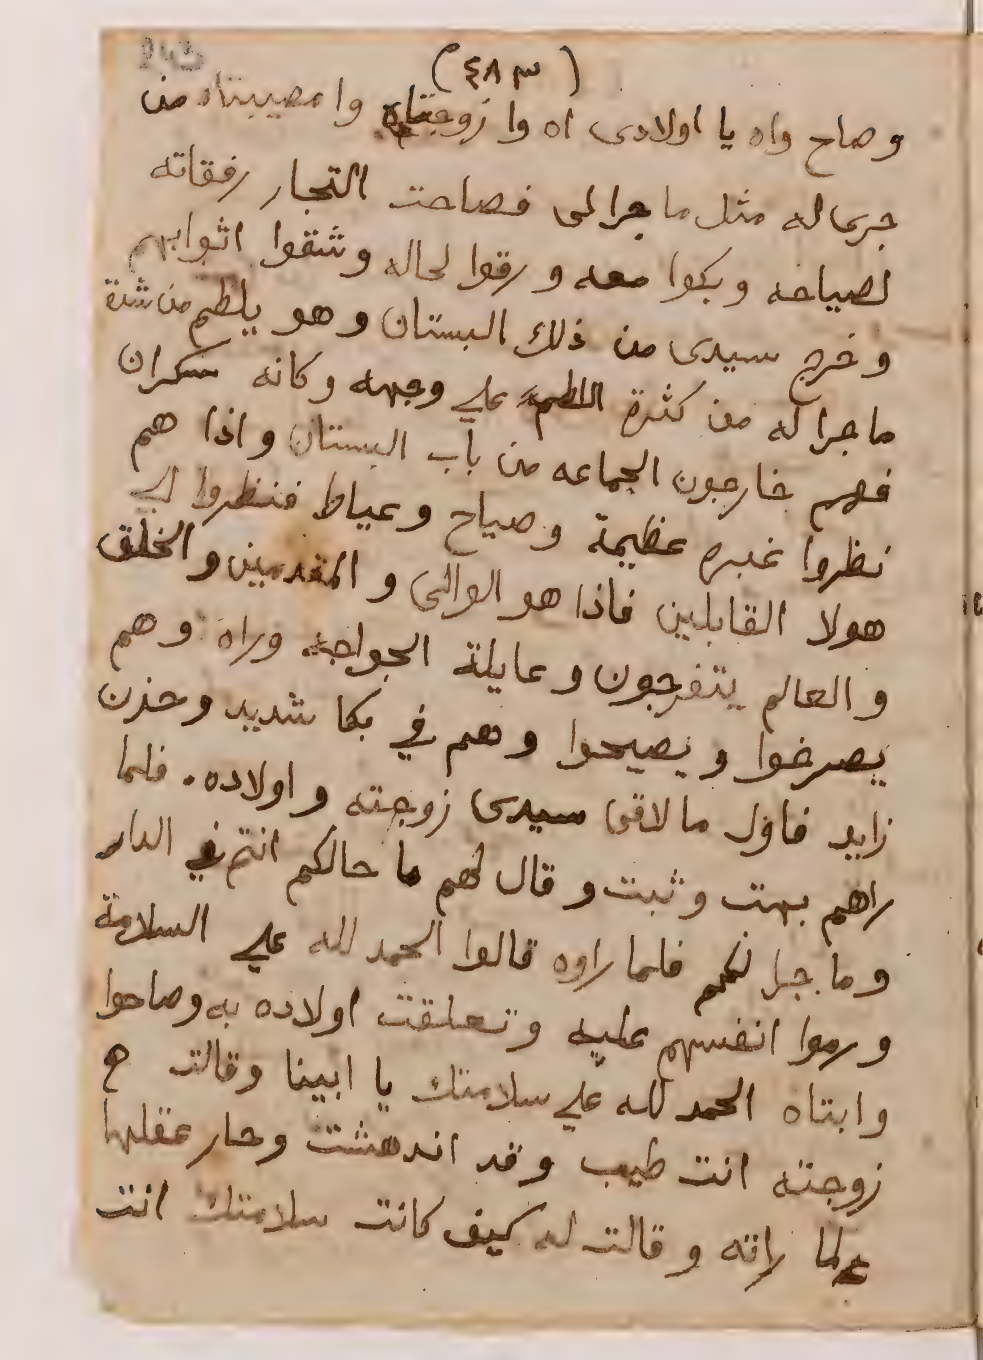 243
(٤٨٣)
وصاح واه يا اولادى اه وا زوجتاه وا مصيبتاه من
جرى له مثل ما جرا لى فصاحت التجار رفقاته
لصياحه وبكوا معه ورقوا لحاله وشقوا اثوابهم
وخرج سيدى من ذلك البستان وهو يلطم من شدة
ما جرا له من كثرة اللطم على وجهه وكانه سكران
فهم خارجون الجماعه من باب البستان واذا هم
نظروا غبره عظيمة وصياح وعياط فنظروا الى
هولا القابلين فاذا هو الوالى والمقدمين والخلق
والعالم يتفرجون وعايلة الخواجه وراه وهم
يصرخوا ويصيحوا وهم في بكا شديد وحزن
زايد فاول ما لاقى سيدى زوجته واولاده . فلما
راهم بهت وثبت وقال لهم ما حالكم انتم في الدار
وما جرا لكم فلما راوه قالوا الحمد لله على السلامة
ورموا انفسهم عليه وتعلقت اولاده به وصاحوا
وابتاه الحمد لله على سلامتك يا ابينا وقالت
زوجته انت طيب وقد اندهشت وحار عقلها
لما راته وقالت له كيف كانت سلامتك انت